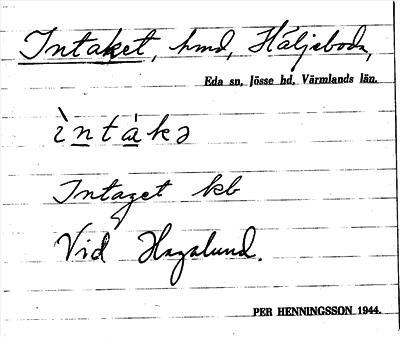 Intaket, hmd, Häljeboda,
Eda sn, Jösse hd, Värmlands län.
ìntàkə
Intaget kb
Vid Hagalund.
PER HENNINGSSON 1944.